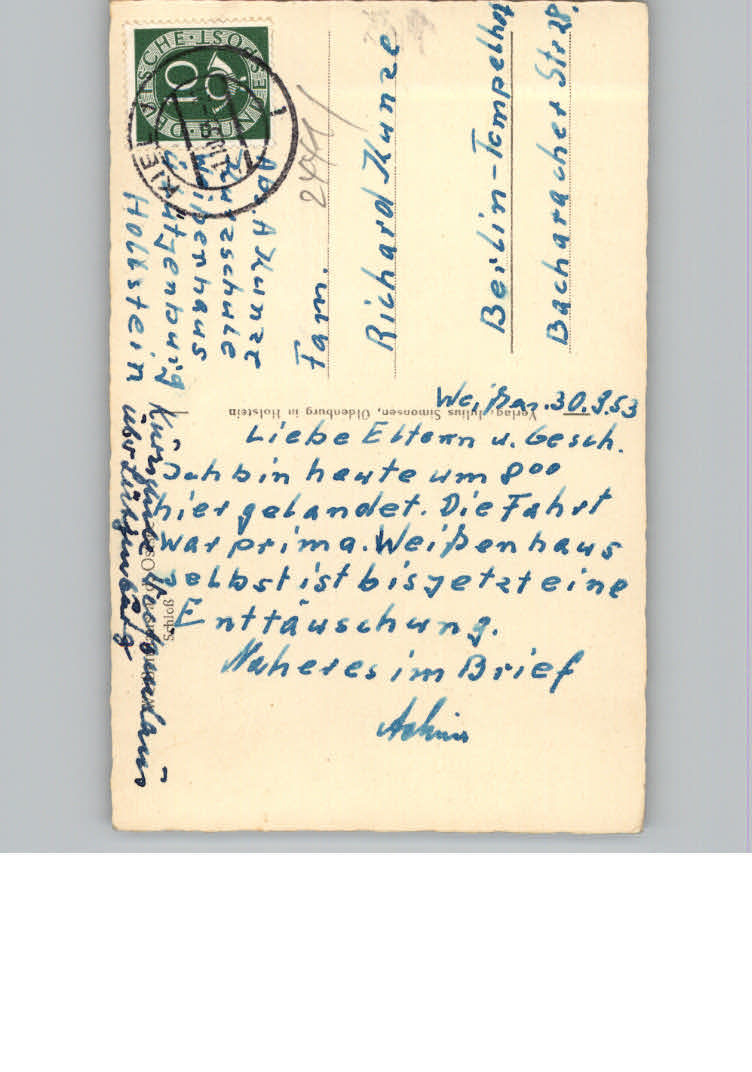 DEUTSCHE BUNDESPOST
10
KIEL
2441
Fam.
Richard Kunze
Berlin-Tempelhof
Bacharacher Str 28.
Abs. A Kunze
Kurzschule
Weißenhaus
Lütjenburg
Holstein
Verlag: Julius Simonsen, Oldenburg in Holstein
Weißen. 30.9.53
Liebe Eltern u. Gesch.
Ich bin heute um 8⁰⁰
hier gelandet. Die Fahrt
war prima. Weißenhaus
selbst ist bis jetzt eine
Enttäuschung.
Näheres im Brief
Achim
Kurzschule Weißenhaus
über Lütjenburg